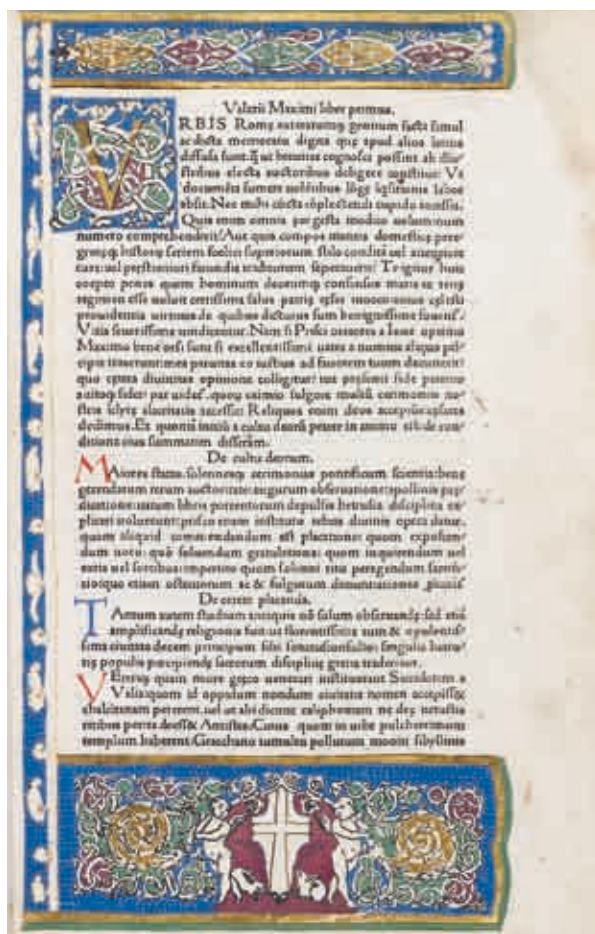 Valerii Maximi liber primus.
V RBIS Romę exterarumq; gentium facta simul
ac dicta memoratu digna quę apud alios latius
diffusa sunt: ut breuius cognosci possint ab illu
stribus electa auctoribus deligere constitui: Vt
documenta sumere uolentibus lõgę iqsitionis labor
absit. Nec mihi cũcta cõplectendi cupido incessit.
Quis enim omnis ęui gesta modico uoluminum
numero comprehenderit? Aut quis compos mentis domesticę pere
grinęq; historię seriem foelici superiorum stilo conditã uel attentiore
cura: uel pręstantiori facundia traditurum sperauerit? Te igitur huic
coepto penes quem hominum deorumq; consensus maris ac terrę
regimen esse uoluit certissima salus patrię cęsar inuoco: cuius cęlesti
prouidentia uirtutes de quibus dicturus sum benignissime fouent̃.
Vitia seuerissime uindicantur. Nam si Prisci oratores a Ioue optimo
Maximo bene orsi sunt: si excellentissimi uates a numine aliquo prĩ
cipia traxerunt: mea paruitas eo iustius ad fauorem tuum decurrerit:
quo cętera diuinitas opinione colligitur: tua pręsenti fide paterno
auitoq; sideri par uidet̃. quorũ eximio fulgore multũ cerimoniis no
stris iclytę claritatis accessit: Reliquos enim deos accepimus: cęsares
dedimus. Et quoniã initiũ a cultu deorũ petere in animo est: de con
ditione eius summatim disserãm.
De cultu deorum.
MAiores statas solennesq; cerimonias pontificum scientia: bene
gerendarum rerum auctoritate: augurum obseruatione: apollinis prę
dictione: uatum libris portentorum depulsis hetrusca disciplina ex
plicari uoluerunt: prisco etiam instituto rebus diuinis opera datur.
quom aliquid commendandum est pręcatione: quom exposcen
dum uoto: quõ soluendum gratulatione: quom inquirendum uel
extis uel sortibus: impetrito quom solenni ritu peragendum sacrifi
cio: quo etiam ostentorum ac & fulgurum denuntiationes
De cerere placanda.
TAntum autem studium antiquis nõ solum obseruandę: sed etiã
amplificandę religionis fuit: ut florentissima tum & opulentis
sima ciuitate decem principum filii senatusconsulto: singulis hetru
rię populis percipiendę sacrorum disciplinę gratia traderent̃.
quam more gręco uenerari instituerant Sacerdotem a
Velia: quom id oppidum nondum ciuitatis nomen accepisset
chalcitanam peterent. uel ut alii dicunt caliphennam: ne deę uetustis
ritibus perita deesset Antistes. Cuius quom in urbe pulcherrimum
templum haberent: Gracchano tumultu moniti sibyllinis